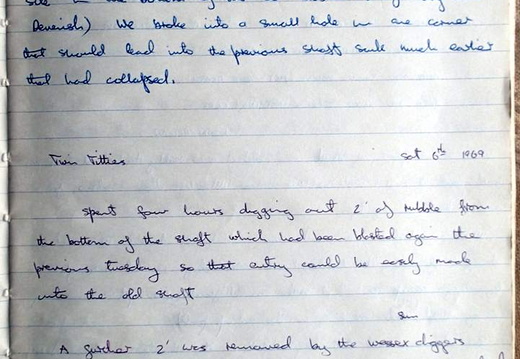 Devenish) We broke into a small hole in one corner
that should lead into the previous shaft sunk much earlier
that had collapsed.
Twin Titties Sat 6th 1969
Spent four hours digging out 2' of rubble from
the bottom of the shaft which had been blasted again the
previous tuesday so that entry could be easily made
into the old shaft
Sun
A further 2' was removed by the wessex diggers